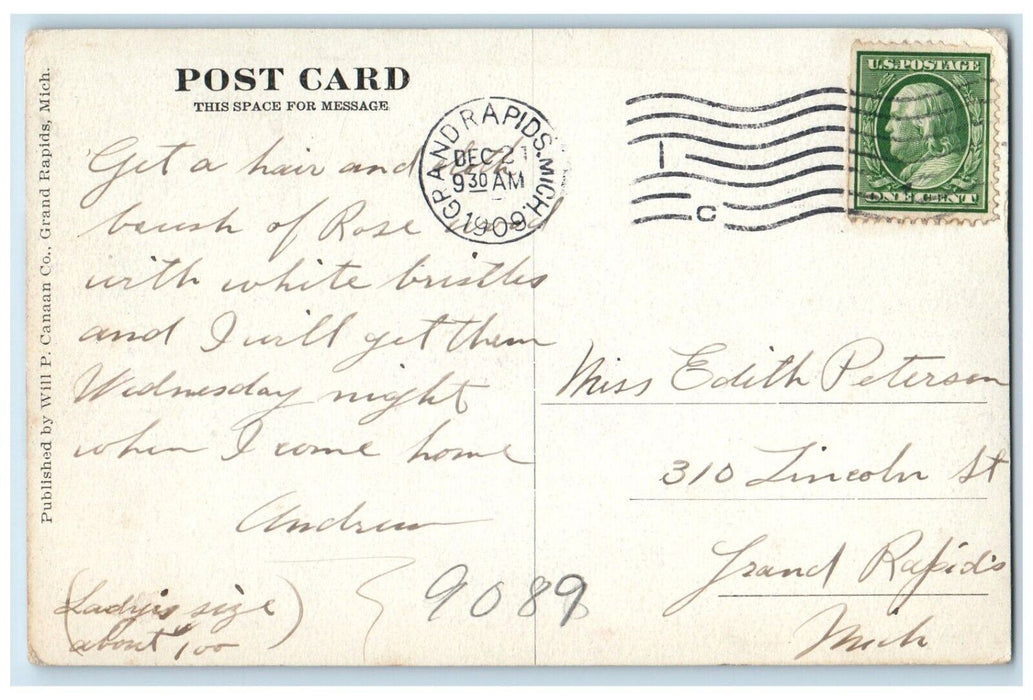 Published by Will P. Canaan Co., Grand Rapids, Mich.
POST CARD
THIS SPACE FOR MESSAGE
Get a hair and
brush of Rose
with white bristles
and I will get them
Wednesday night
when I come home
Andrew
(Lady's size
about $1.00)
9089
GRAND RAPIDS. MICH.
DEC 21
9 30 AM
1909
1
C
U.S. POSTAGE
ONE CENT
Miss Edith Peterson
310 Lincoln St
Grand Rapids
Mich